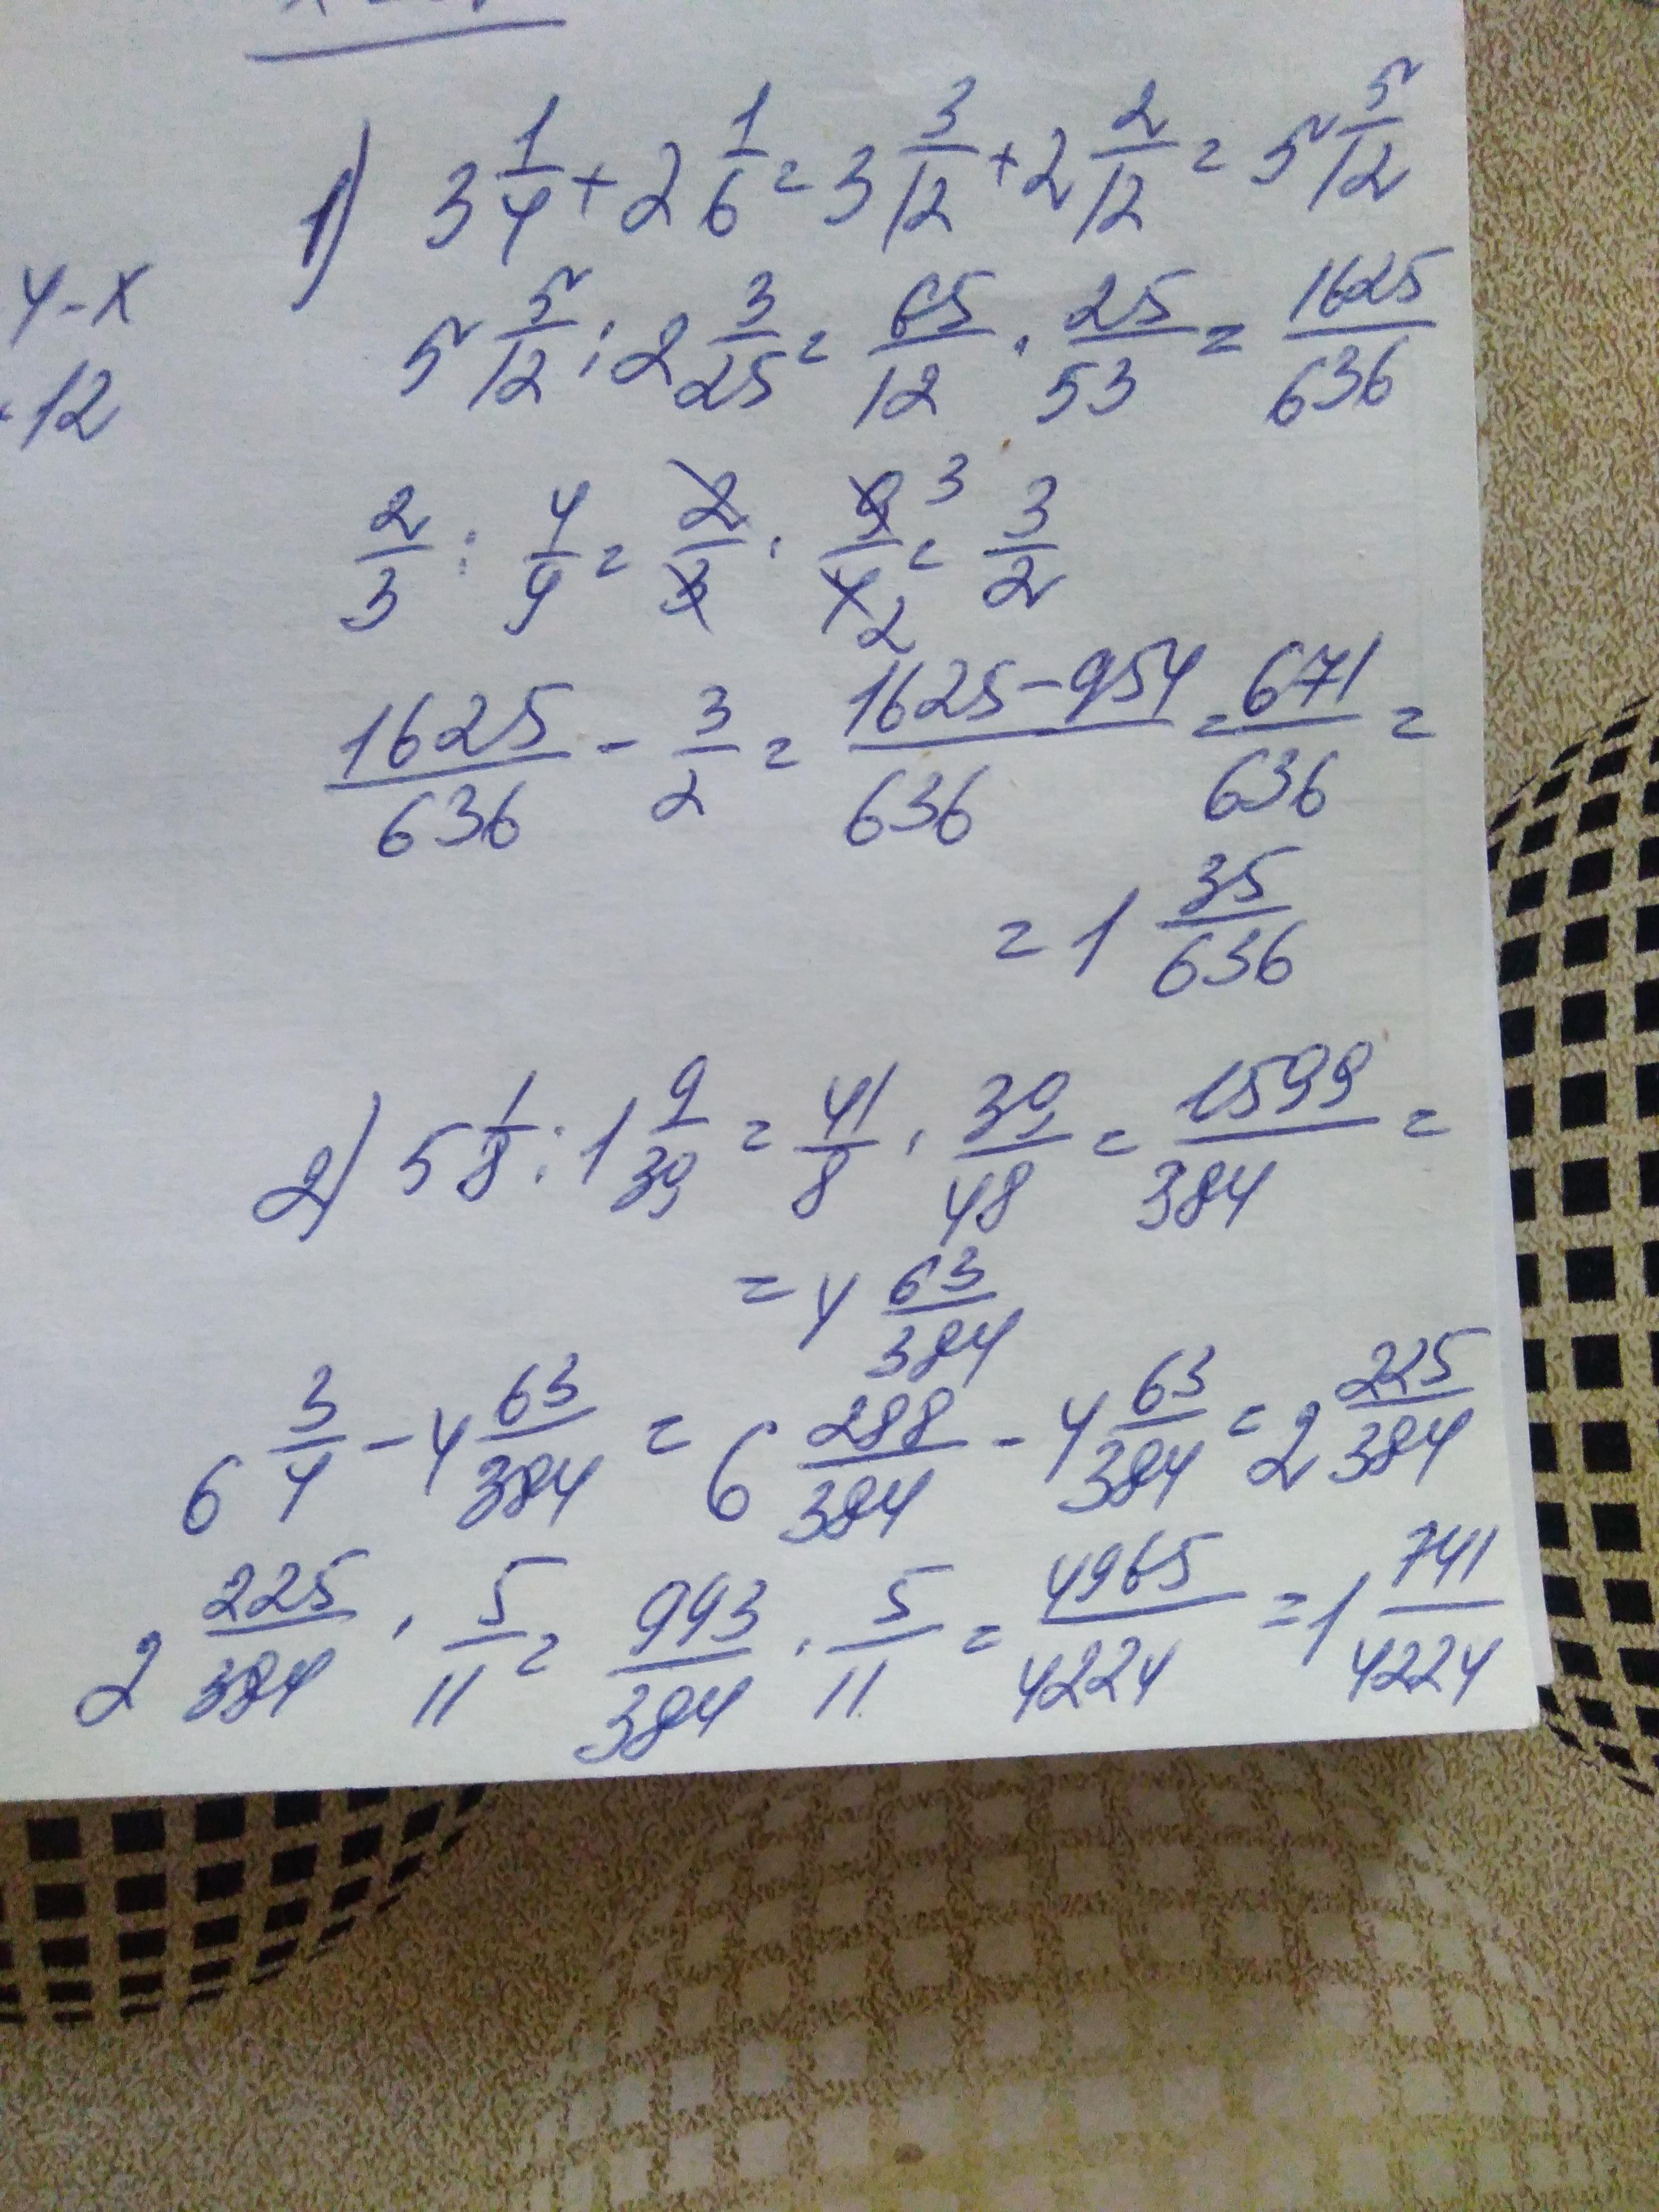 1) 3 1/4 + 2 1/6 = 3 3/12 + 2 2/12 = 5 5/12
4-x
5 5/12 : 2 3/25 = 65/12 · 25/53 = 1625/636
12
2/3 : 4/9 = 2/3 · 9/4 3 2 = 3/2
1625/636 - 3/2 = 1625-954/636 = 671/636 =
= 1 35/636
2) 5 1/8 : 1 9/39 = 41/8 · 39/48 = 1599/384 =
= 4 63/384
6 3/4 - 4 63/384 = 6 288/384 - 4 63/384 = 2 225/384
2 225/384 · 5/11 = 993/384 · 5/11 = 4965/4224 = 1 741/4224